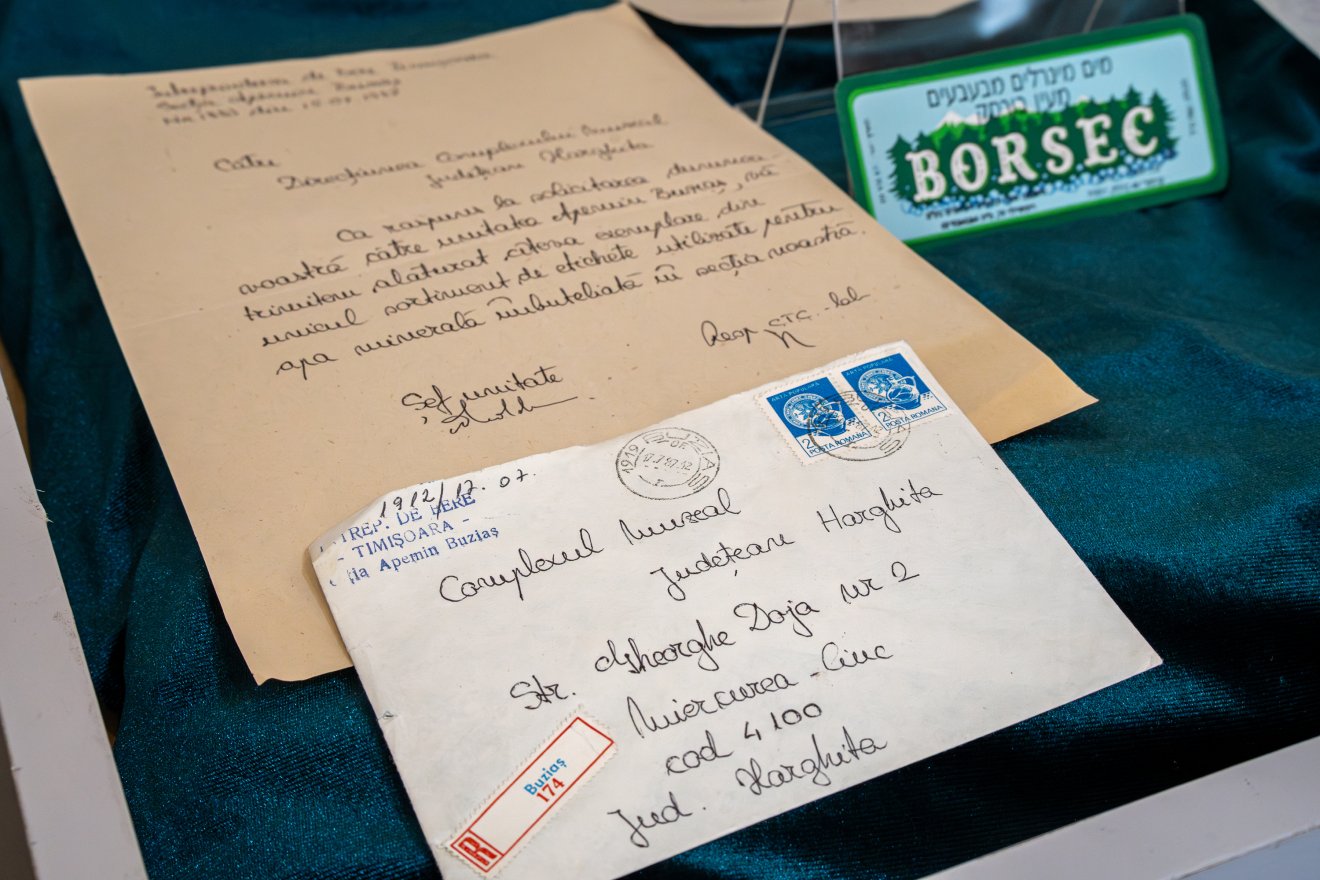 Intreprinderea de bere Timișoara
Secția Apemin Buziaș
Nr. din 15.07.1987
Către
Direcțiunea Complexului Muzeal
Județean Harghita
Ca răspuns la solicitarea dumnea-
voastră către unitatea Apemin Buziaș, vă
trimitem alăturat cîteva exemplare din
unicul sortiment de etichete utilizate pentru
apa minerală îmbuteliată în secția noastră.
Șef unitate
Resp CTC - lab
מים מינרלים מבעבעים
מעין בורסק
BORSEC
1912/17.07.
TREP. DE BERE
- TIMIȘOARA -
ția Apemin Buziaș
BUZIAȘ
17.7.87.12
1919
ARTA POPULARA
2L
POSTA ROMANA
ARTA POPULARA
2L
POSTA ROMANA
Complexul Muzeal
Județean Harghita
Str. Gheorghe Doja nr 2
Miercurea-Ciuc
cod 4100
Jud. Harghita
R
Buziaș
174